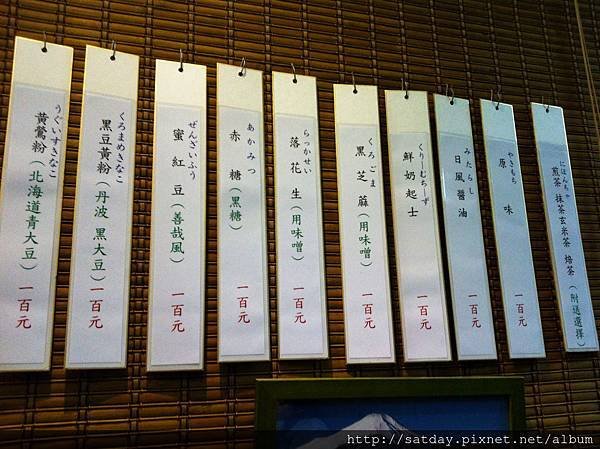 にほんちゃ
煎茶 抹茶玄米茶 焙茶(附送選擇)
やきもち
原味 一百元
みたらし
日風醬油 一百元
くりーむちーず
鮮奶起士 一百元
くろごま
黑芝蔴(用味噌) 一百元
らっかせい
落花生(用味噌) 一百元
あかみつ
赤糖(黑糖) 一百元
ぜんざいふう
蜜紅豆(善哉風) 一百元
くろまめきなこ
黑豆黃粉(丹波 黑大豆) 一百元
うぐいすきなこ
黃鶯粉(北海道青大豆) 一百元
http://satday.pixnet.net/album